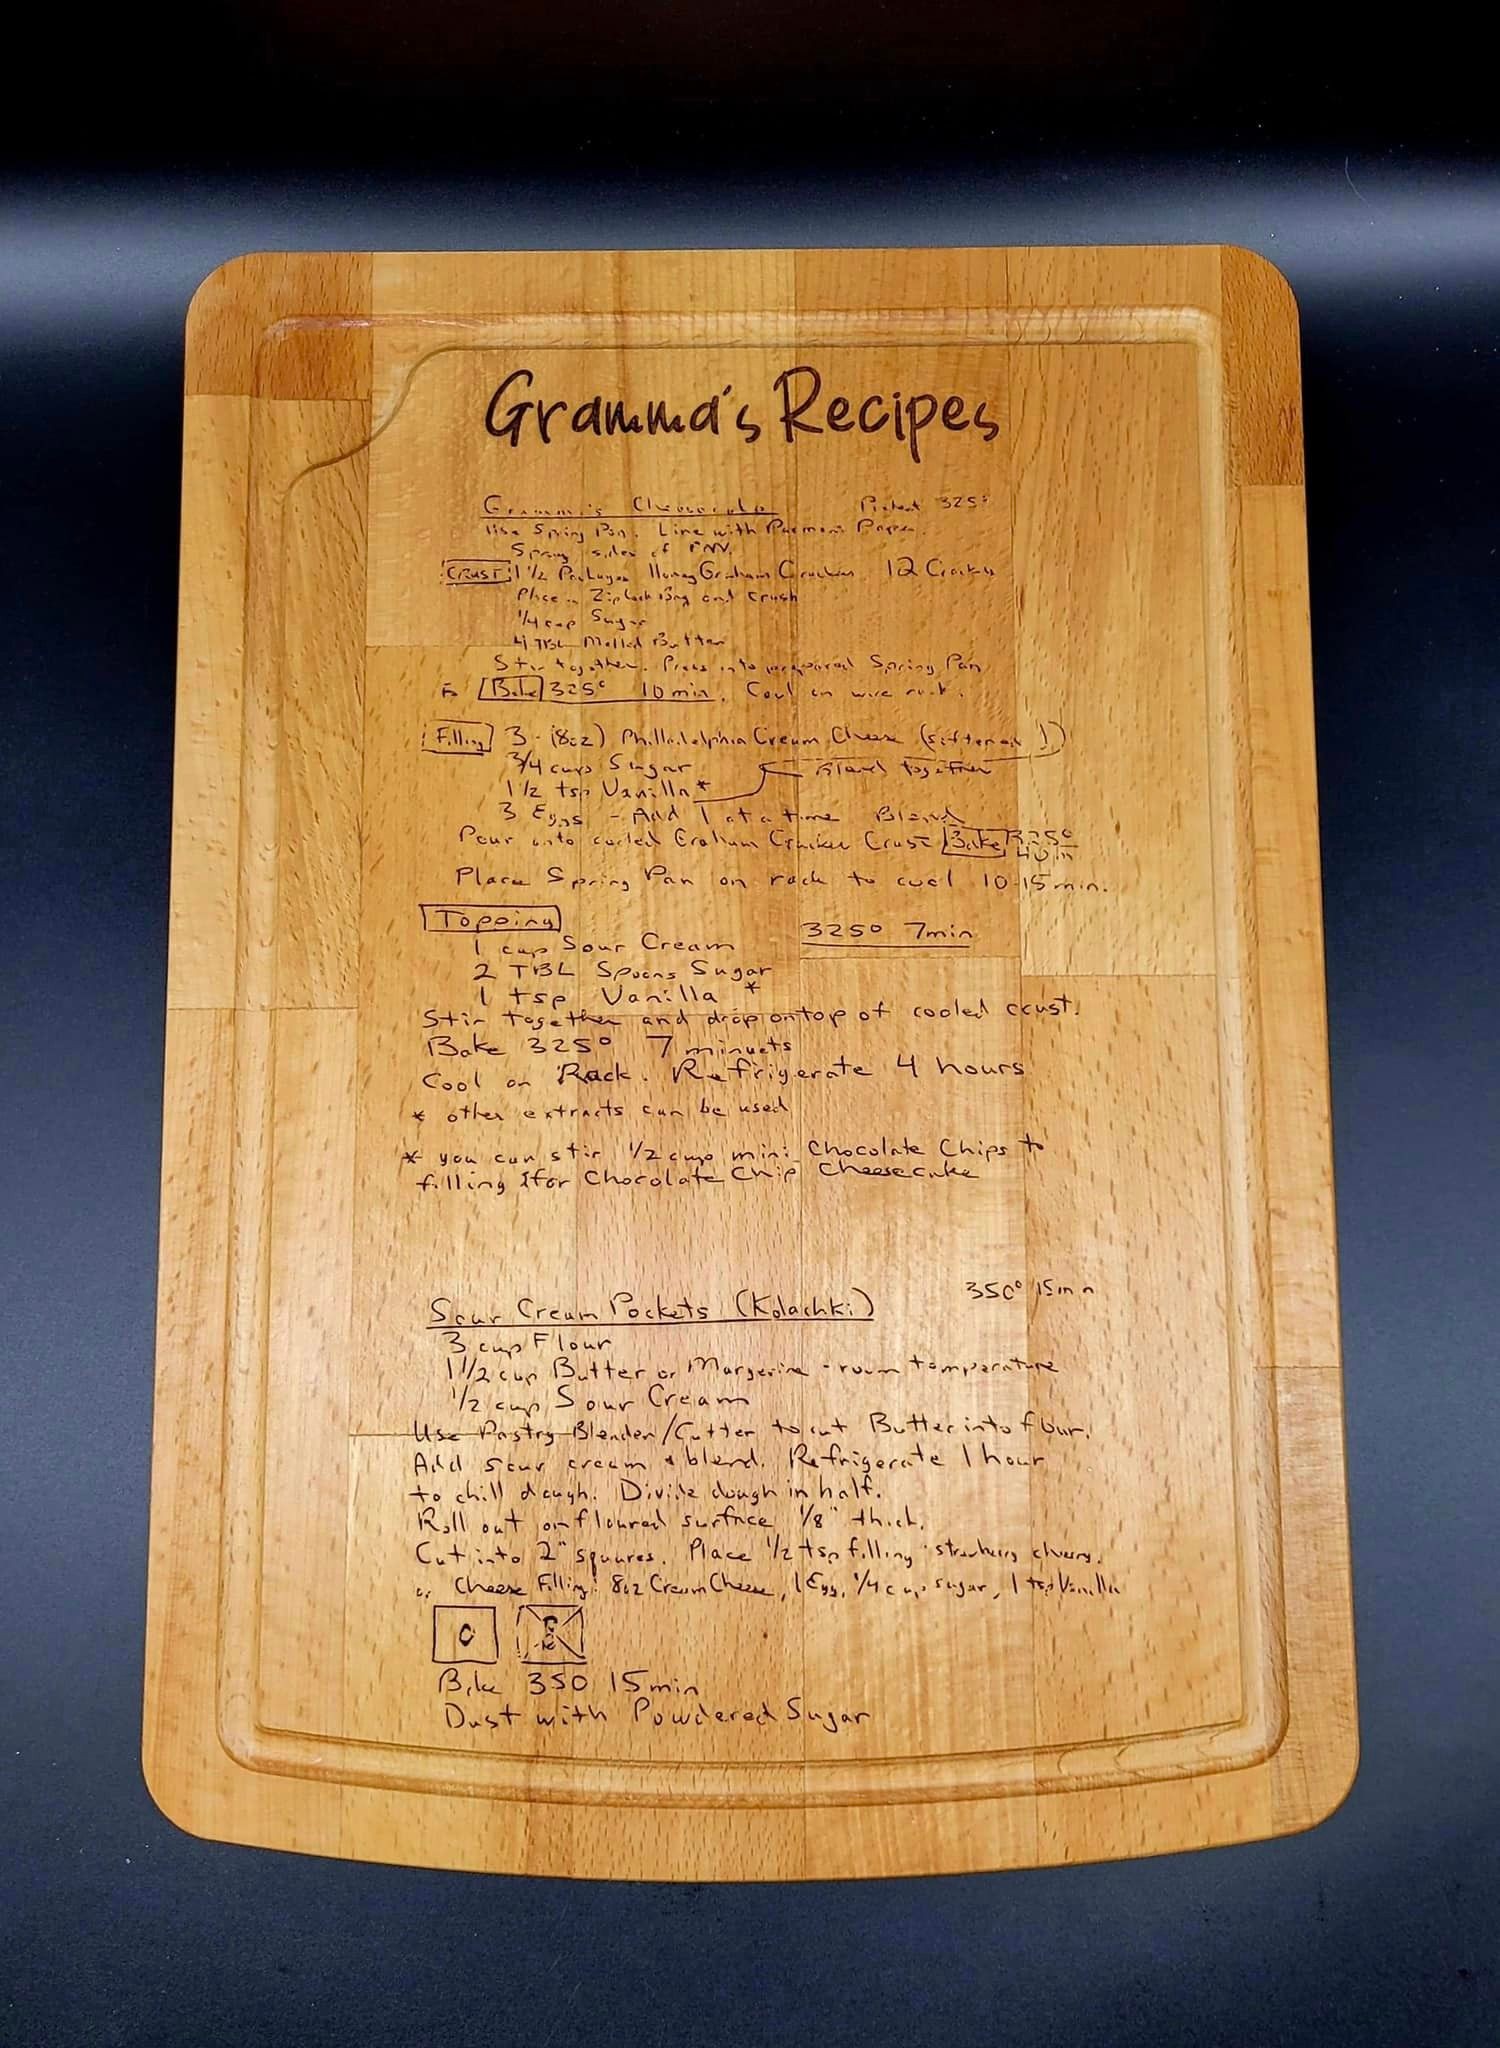 Gramma's Recipes
Gramma's Cheesecake Preheat 325°
Use Spring Pan. Line with Parment Paper.
Spray sides of PAN.
CRUST 1 1/2 Packages Honey Graham Crackers 12 Crackers
Place in Ziplock Bag and crush
1/4 cup Sugar
4 TBL Melted Butter
Stir together. Press into prepared Spring Pan
Bake 325° 10 min. Cool on wire rack.
Filling 3 - (8oz) Philladelphia Cream Cheese (softened!)
3/4 cup Sugar Blend together
1 1/2 tsp Vanilla*
3 Eggs - Add 1 at a time Blend
Pour onto cooled Graham Cracker Crust Bake 325° 40 m
Place Spring Pan on rack to cool 10-15 min.
Topping
325° 7min
1 cup Sour Cream
2 TBL Spoons Sugar
1 tsp Vanilla *
Stir together and drop ontop of cooled crust.
Bake 325° 7 minuets
Cool on Rack. Refrigerate 4 hours
* other extracts can be used
* you can stir 1/2 cup mini Chocolate Chips to
filling for Chocolate Chip Cheesecake
350° 15min
Sour Cream Pockets (Kolachki)
3 cup Flour
1 1/2 cup Butter or Margerine - room temperature
1/2 cup Sour Cream
Use Pastry Blender/Cutter to cut Butter into flour.
Add sour cream & blend. Refrigerate 1 hour
to chill dough. Divide dough in half.
Roll out on floured surface 1/8" thick.
Cut into 2" squares. Place 1/2 tsp filling strawberry cherry.
or Cheese Filling: 8oz Cream Cheese, 1 Egg, 1/4 cup sugar, 1 tsp Vanilla
Bake 350 15 min
Dust with Powdered Sugar